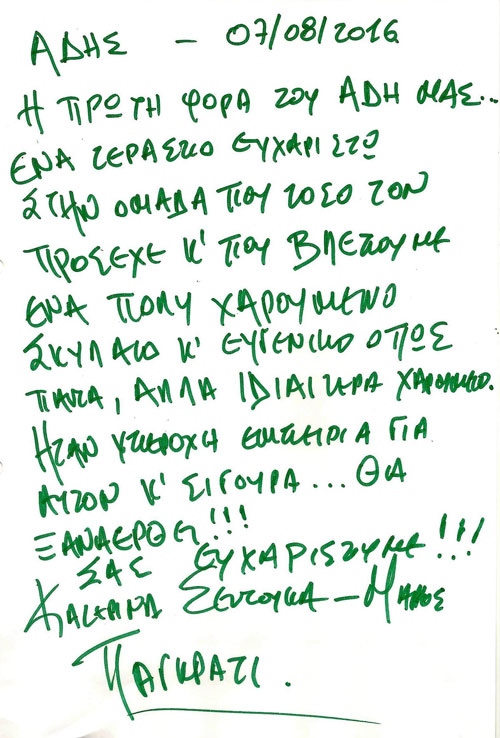 ΑΔΗΣ - 07/08/2016
Η ΠΡΩΤΗ ΦΟΡΑ ΤΟΥ ΑΔΗ ΜΑΣ...
ΕΝΑ ΤΕΡΑΣΤΙΟ ΕΥΧΑΡΙΣΤΩ
ΣΤΗΝ ΟΜΑΔΑ ΠΟΥ ΤΟΣΟ ΤΟΝ
ΠΡΟΣΕΧΕ Κ' ΠΟΥ ΒΛΕΠΟΥΜΕ
ΕΝΑ ΠΟΛΥ ΧΑΡΟΥΜΕΝΟ
ΣΚΥΛΑΚΟ Κ' ΕΥΓΕΝΙΚΟ ΟΠΩΣ
ΠΑΝΤΑ, ΑΛΛΑ ΙΔΙΑΙΤΕΡΑ ΧΑΡΟΥΜΕΝΟ.
ΗΤΑΝ ΥΠΕΡΟΧΗ ΕΜΠΕΙΡΙΑ ΓΙΑ
ΑΥΤΟΝ Κ' ΣΙΓΟΥΡΑ... ΘΑ
ΞΑΝΑΕΡΘΕΙ!!!
ΣΑΣ ΕΥΧΑΡΙΣΤΟΥΜΕ!!!
ΚΑΤΕΡΙΝΑ - ΜΑΝΟΣ
ΠΑΓΚΡΑΤΙ.